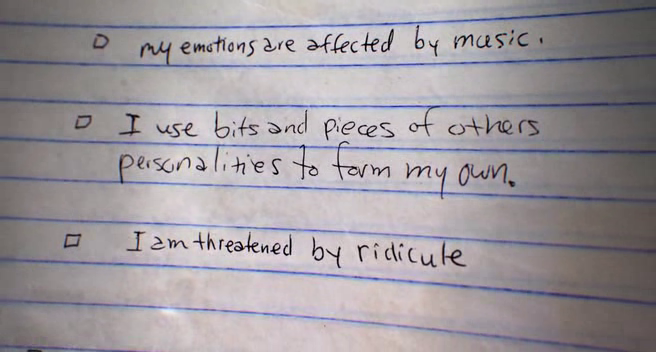 my emotions are affected by music.
I use bits and pieces of others
personalities to form my own.
I am threatened by ridicule